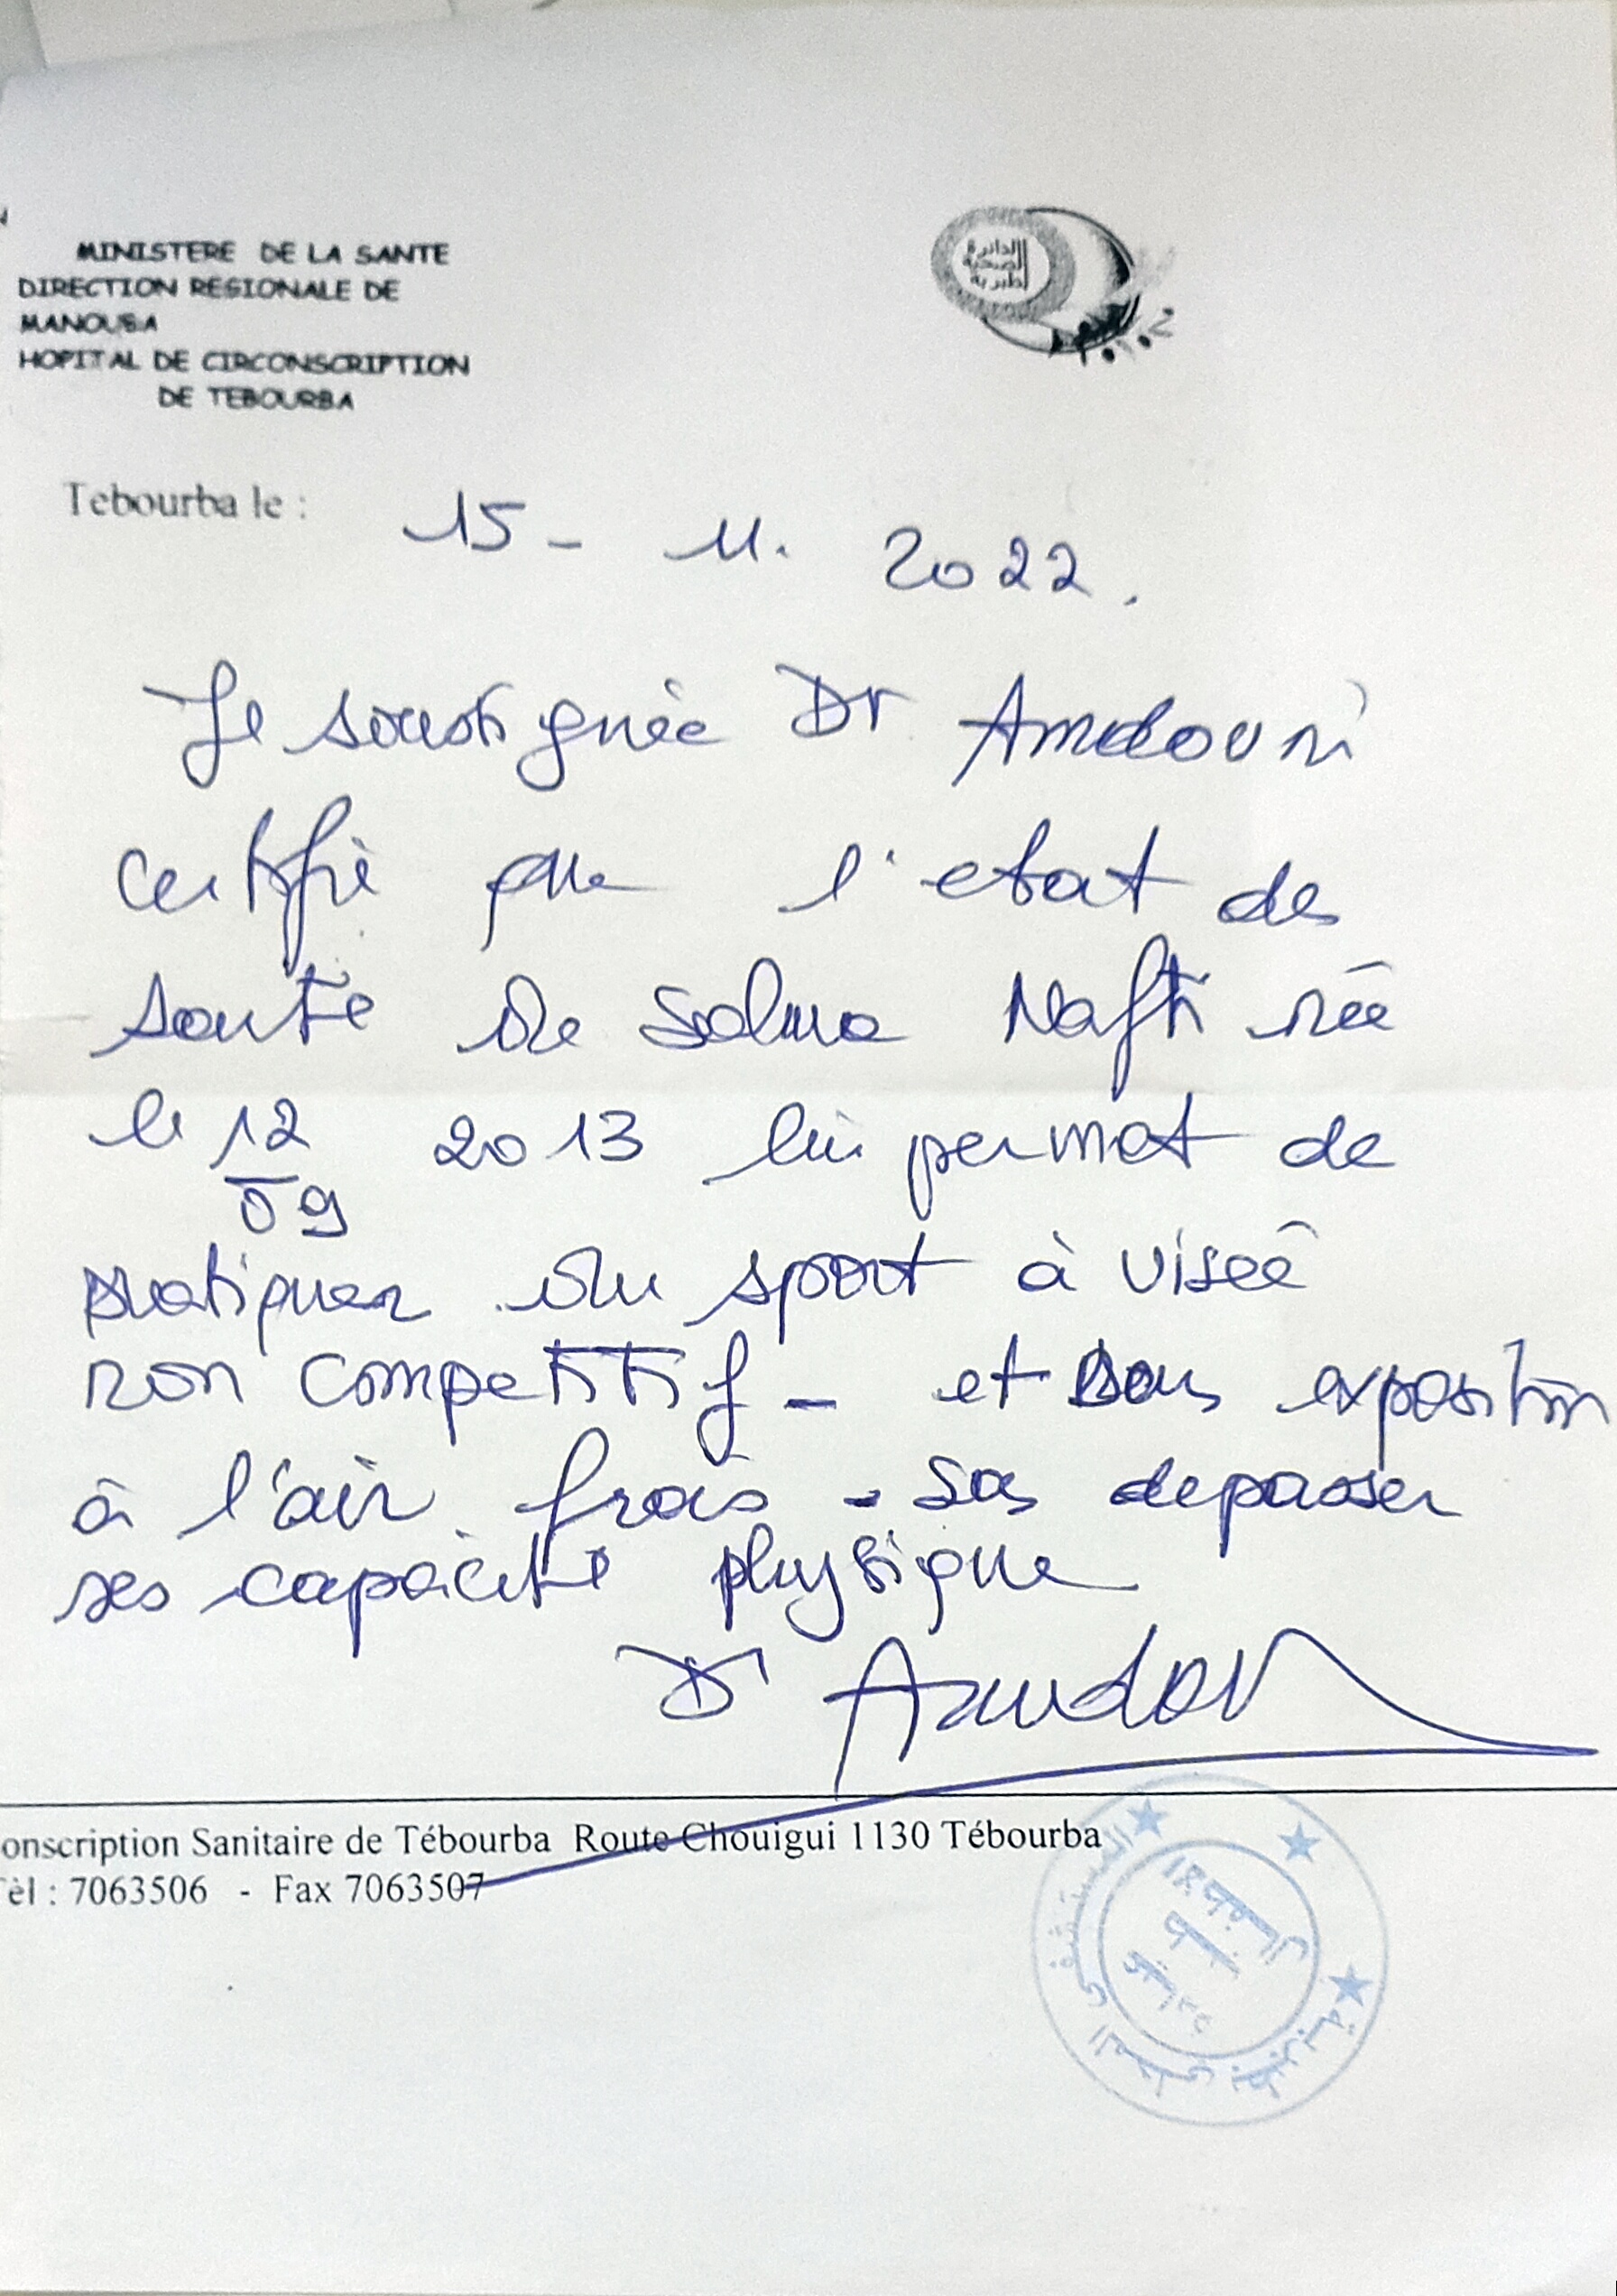 MINISTERE DE LA SANTE
DIRECTION REGIONALE DE
MANOUBA
HOPITAL DE CIRCONSCRIPTION
DE TEBOURBA
الدائرة
الصحية
بطبربة
Tebourba le : 15 - 11. 2022.
Je soussignée Dr Amdouni
certifie que l'etat de
santé de Selma Nafti née
le 12/09 2013 lui permet de
pratiquer du sport à viseé
non competitif - et sans exposition
à l'air frais - sas depasser
ses capacité physique
Dr Amdou
onscription Sanitaire de Tébourba Route Chouigui 1130 Tébourba
Tèl : 7063506 - Fax 7063507
المستشفى المحلي بطبربة